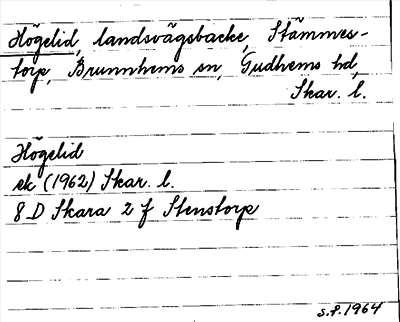 Högelid, landsvägsbacke, Stämmes-
torp, Brunnhems sn, Gudhems hd,
Skar. l.
Högelid
ek (1962) Skar. l.
8 D Skara 2 f Stenstorp
S.F. 1964